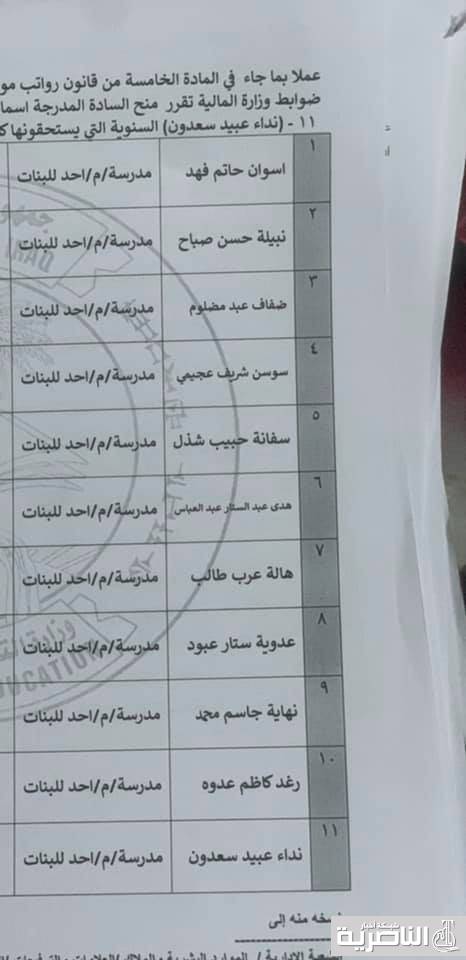 عملا بما جاء في المادة الخامسة من قانون رواتب مو
ضوابط وزارة المالية تقرر منح السادة المدرجة اسما
١١ - (نداء عبيد سعدون) السنوية التي يستحقونها ك
١ اسوان حاتم فهد مدرسة/م/احد للبنات
٢ نبيلة حسن صباح مدرسة/م/احد للبنات
٣ ضفاف عبد مضلوم مدرسة/م/احد للبنات
٤ سوسن شريف عجيمي مدرسة/م/احد للبنات
٥ سفانة حبيب شذل مدرسة/م/احد للبنات
٦ هدى عبد الستار عبد العباس مدرسة/م/احد للبنات
٧ هالة عرب طالب مدرسة/م/احد للبنات
٨ عدوية ستار عبود مدرسة/م/احد للبنات
٩ نهاية جاسم محمد مدرسة/م/احد للبنات
١٠ رغد كاظم عدوه مدرسة/م/احد للبنات
١١ نداء عبيد سعدون مدرسة/م/احد للبنات
نسخه منه إلى
IRAQ
وزارة
EDUCATION
شبكة أخبار
الناصرية